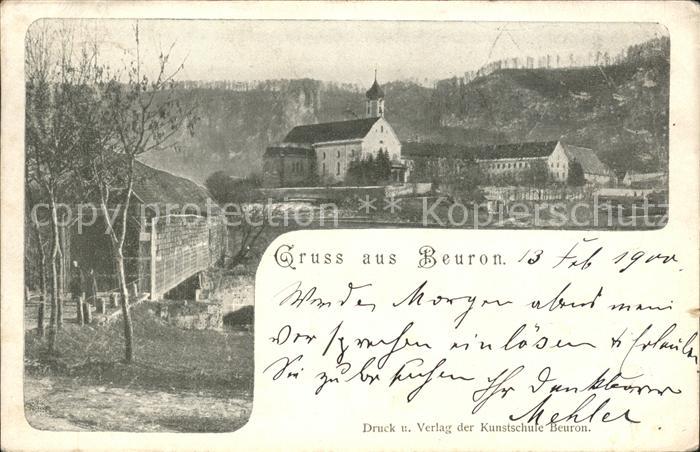 copyright protection ** Kopierschutz
Gruss aus Beuron. 13 Feb 1900.
Werde Morgen abend mein
Versprechen einlösen & Erlauben
Sie zu besuchen Ihr dankbarer
Mehler
Druck u. Verlag der Kunstschule Beuron.